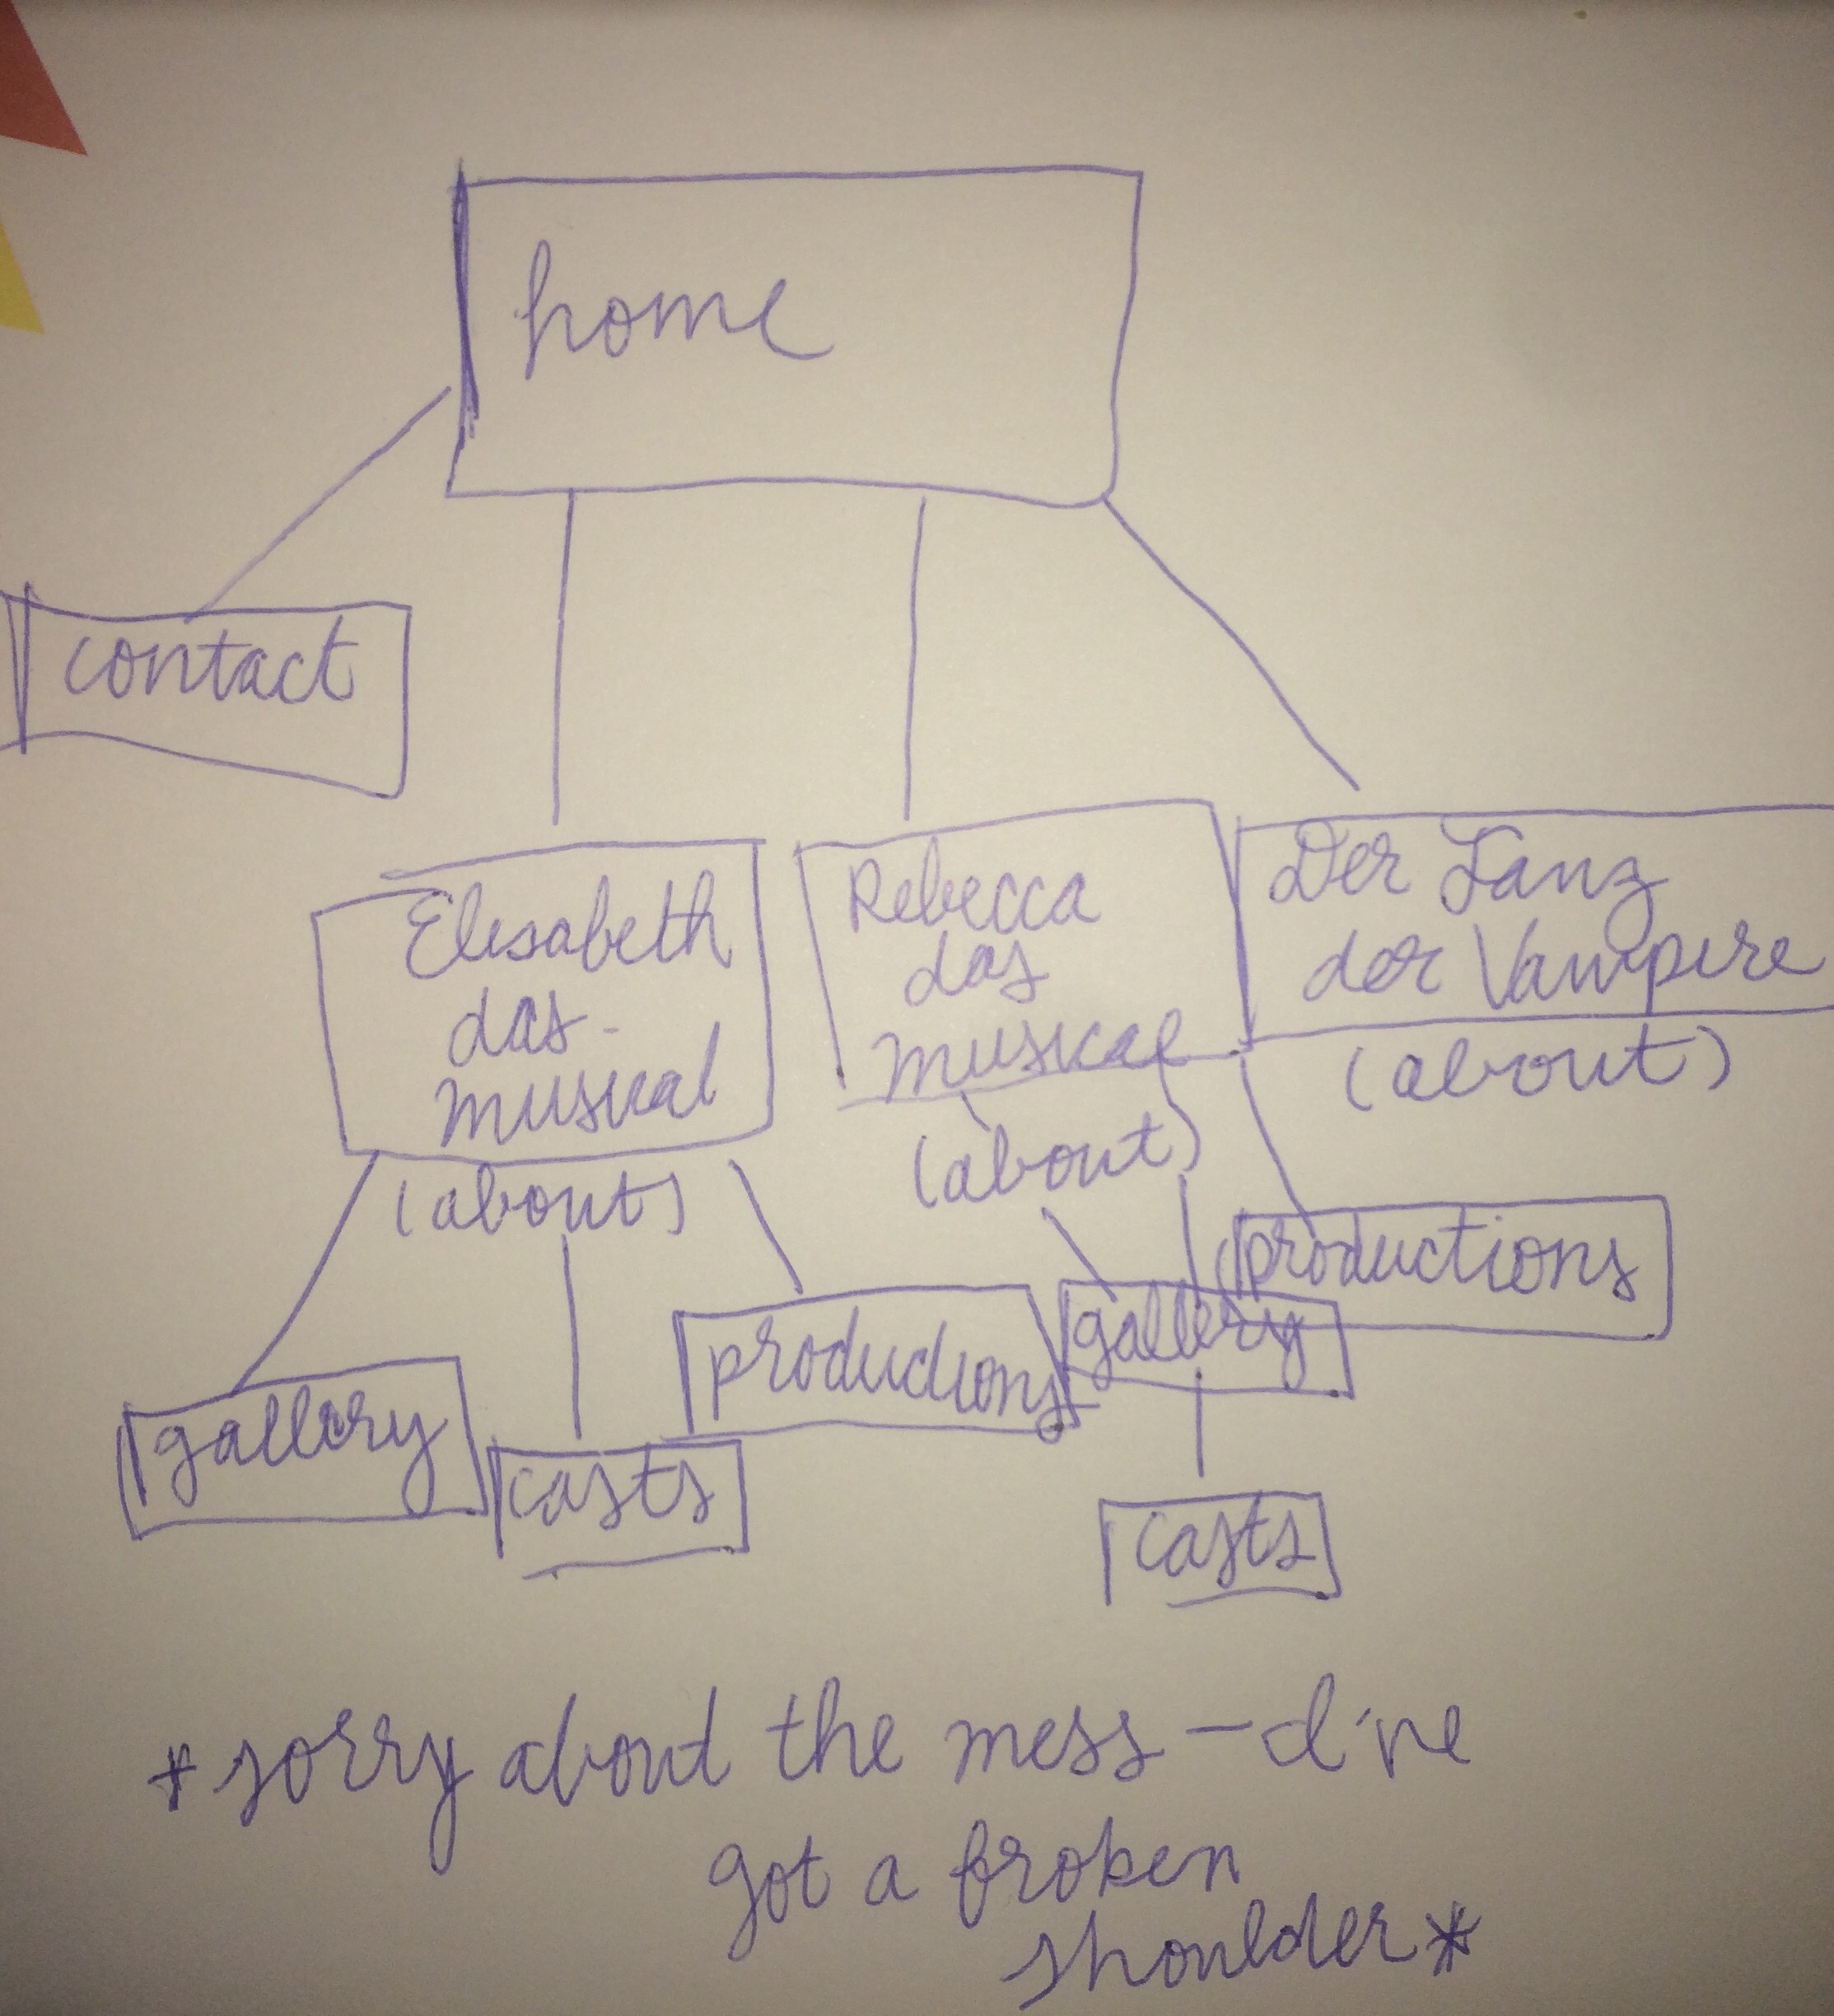 home
contact
Elisabeth
das
musical
(about)
Rebecca
das
musical
(about)
Der Tanz
der Vampire
(about)
gallery
casts
productions
gallery
productions
casts
*sorry about the mess - I've
got a broken
shoulder*